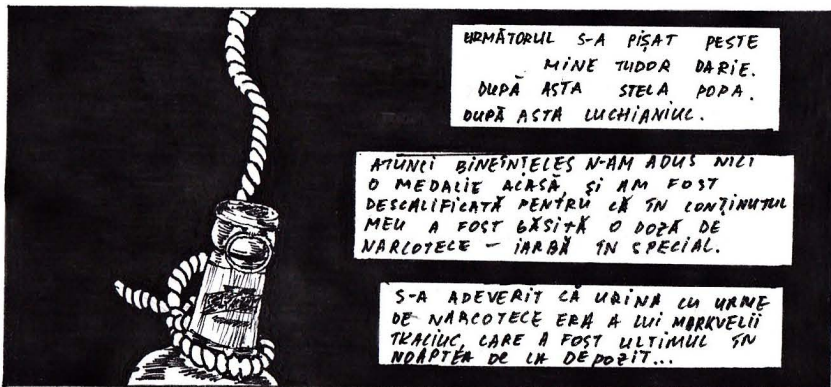 URMĂTORUL S-A PIȘAT PESTE
MINE TUDOR DARIE.
DUPĂ ASTA STELA POPA.
DUPĂ ASTA LUCHIANIUC.
ATUNCI BINEÎNȚELES N-AM ADUS NICI
O MEDALIE ACASĂ, ȘI AM FOST
DESCALIFICATĂ PENTRU CĂ ÎN CONȚINUTUL
MEU A FOST GĂSITĂ O DOZĂ DE
NARCOTECE – IARBĂ ÎN SPECIAL.
S-A ADEVERIT CĂ URINA CU URME
DE NARCOTECE ERA A LUI MARKVELII
TKACIUC, CARE A FOST ULTIMUL ÎN
NOAPTEA DE LA DEPOZIT...